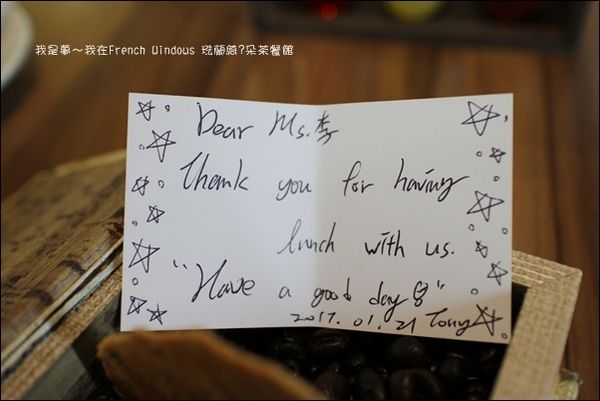 我是夢～我在French Windous 琺蘭鎴?朵茶餐館
Dear Ms. 李
Thank you for having
lunch with us.
"Have a good day"
2017. 01. 21 Tony